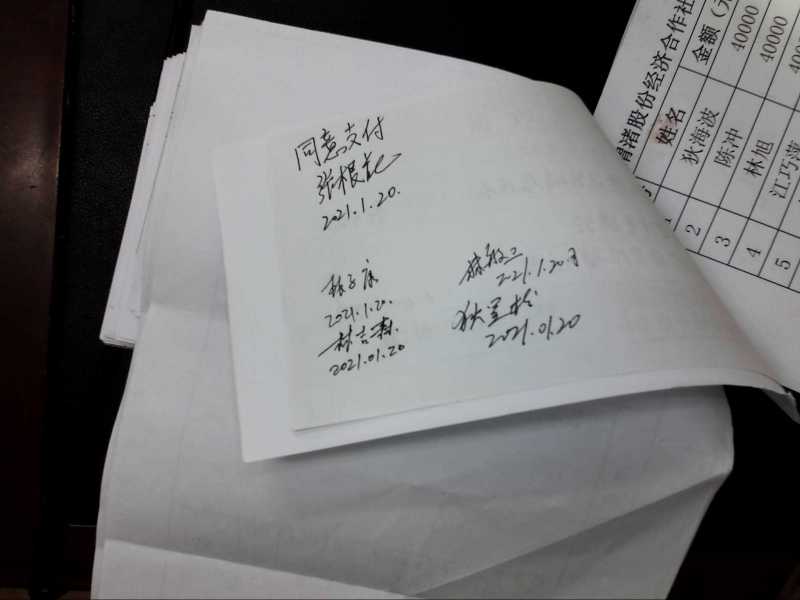 同意支付
张根龙
2021.1.20.
2021.1.20.
林吉森
2021.01.20
2021.1.20日
2021.01.20
渭渚股份经济合作社
姓名
金额(元
1
2
狄海波
40000
3
陈冲
40000
4
林旭
400
5
江巧萍